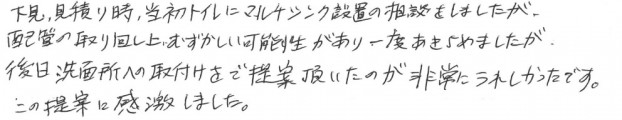 下見,見積り時,当初トイレにマルチシンク設置の相談をしましたが、
配管の取り回し上、むずかしい可能性があり一度あきらめましたが、
後日洗面所への取付けまで提案頂いたのが非常にうれしかったです。
この提案に感激しました。